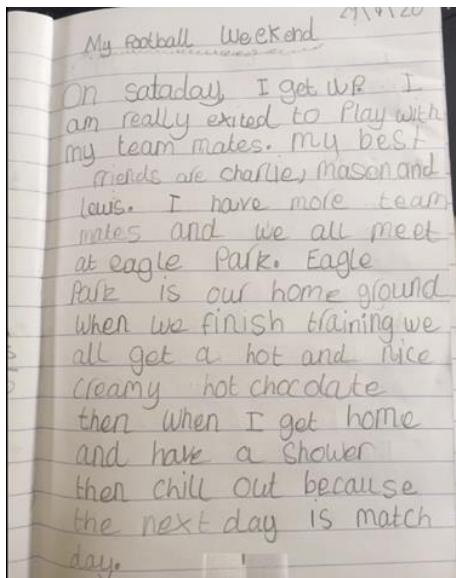 My Football Weekend
On sataday, I get up. I
am really exited to Play with
my team mates. my best
friends are charlie, mason and
lewis. I have more team
mates and we all meet
at eagle Park. Eagle
Park is our home ground
when we finish training we
all get a hot and nice
creamy hot chocolate
then when I get home
and have a shower
then chill out because
the next day is match
day.